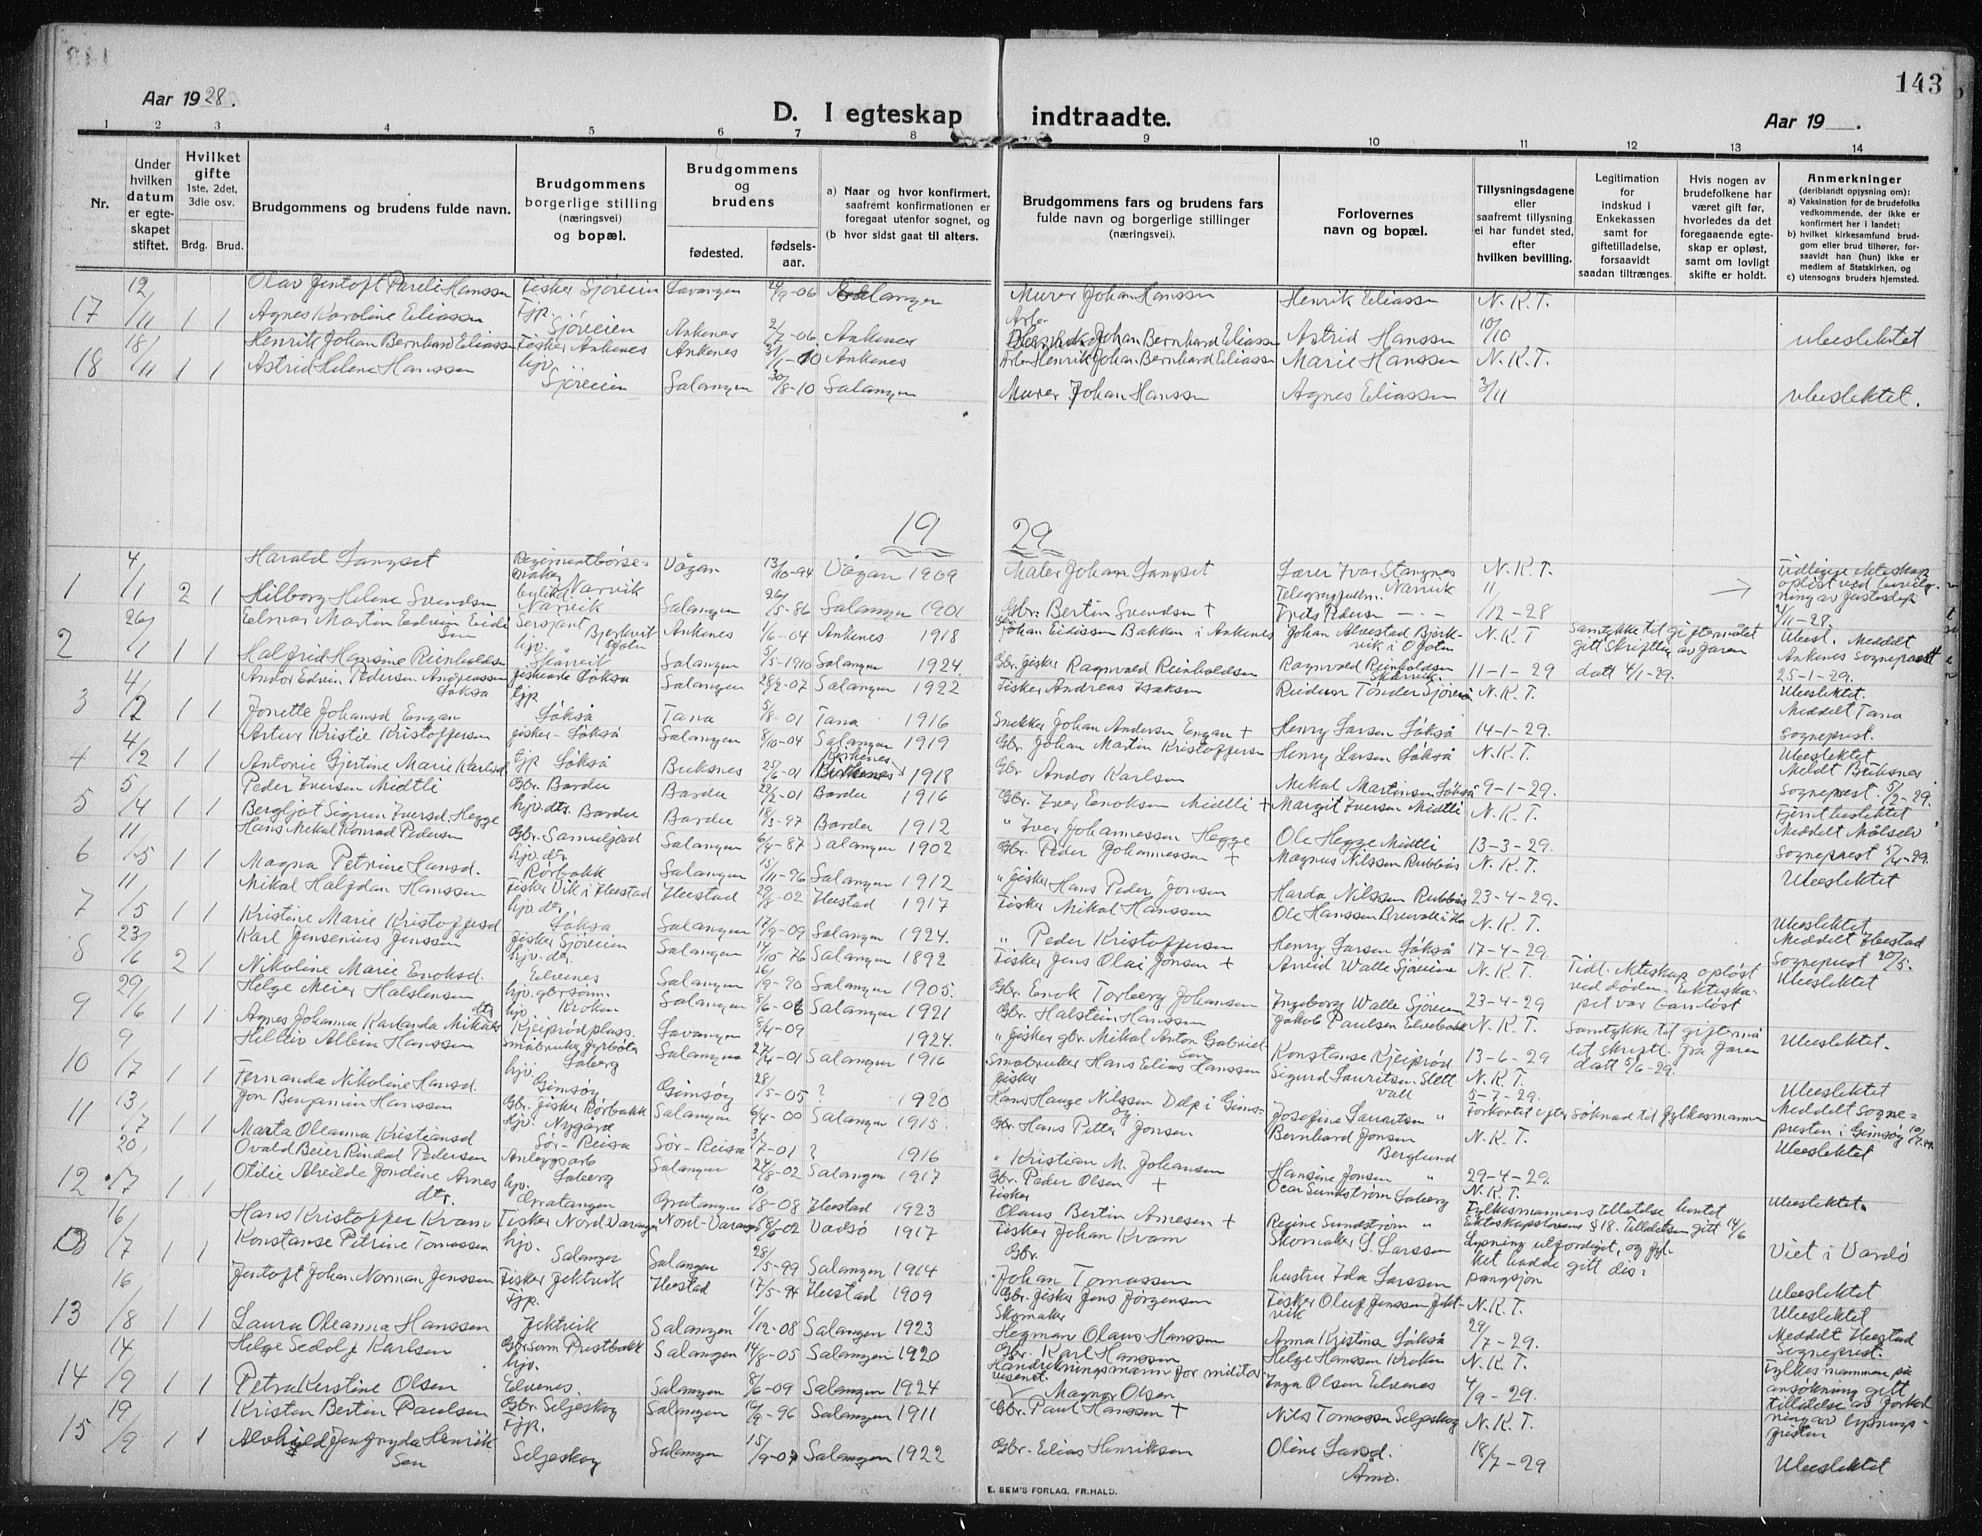 143
Aar 1928.
D. I egteskap indtraadte.
Aar 19 .
1 2 3 4 5 6 7 8 9 10 11 12 13 14
Nr.
Under hvilken datum er egteskapet stiftet.
Hvilket gifte 1ste, 2det, 3die osv.
Brdg. Brud.
Brudgommens og brudens fulde navn.
Brudgommens borgerlige stilling (næringsvei) og bopæl.
Brudgommens og brudens
fødested. fødselsaar.
a) Naar og hvor konfirmert, saafremt konfirmationen er foregaat utenfor sognet, og
(b hvor sidst gaat til alters.
Brudgommens fars og brudens fars fulde navn og borgerlige stillinger (næringsvei).
Forlovernes navn og bopæl.
Tillysningsdagene eller saafremt tillysning ei har fundet sted, efter hvilken bevilling.
Legitimation for indskud i Enkekassen samt for giftetilladelse, forsaavidt saadan tiltrænges.
Hvis nogen av brudefolkene har været gift før, hvorledes da det foregaaende egteskap er opløst, samt om lovligt skifte er holdt.
Anmerkninger (deriblandt opjysning om):
a) Vaksination for de brudefolks vedkommende, der ikke er konfirmert her i landet:
b) hvilket kirkesamfund brudgom eller brud tilhører, forsaavidt han (hun) ikke er medlem af Statskirken, og
c) utensogns bruders hjemsted.
17 12/11 1 1 Olav Jentoft Pareli Hanssen Fisker Sjøveien Lavangen 24/9-06 Salangen Murer Johan Hanssen Henrik Eliassen N.K.T.
Agnes Karoline Eliassen Tjp. Sjøveien Ankenes 2/7-06 Ankenes Arb. Henrik Johan Bernhard Eliassen Astrid Hanssen 10/10 Ubeslektet
18 18/11 1 1 Henrik Johan Bernhard Eliassen Fisker Ankenes Ankenes 31/1-10 Ankenes Arb. Henrik Johan Bernhard Eliassen Marie Hanssen N.K.T.
Astrid Helene Hanssen hjv. Sjøveien Salangen 30/8-10 Salangen Murer Johan Hanssen Agnes Eliassen 3/11 Ubeslektet.
19 29
1 4/1 2 1 Harald Sampet Narvik Vågan 13/10-94 Vågan 1909 Maler Johan Sampet Lærer Ivar Stangnes Narvik N.K.T.
Hilborg Helene Svendsen Narvik Salangen 26/5-86 Salangen 1901 Gbr. Bertin Svendsen + Frits Pedersen 11/12-28
2 26/1 1 1 Einar Martin Edvin Eidissen Sersjant Bjerkvik Ofoten Ankenes 1/6-04 Ankenes 1918 Johan Eidissen Bakken i Ankenes Johan Alvestad Bjerkvik i Ofoten N.K.T Samtykke til giftermålet gitt skriftlig av faren datt 4/1-29. Ubesl. Meddelt Ankenes sogneprest 25-1-29.
Halfrid Hansine Reinholdsen hjv. Salangen 5/5-1910 Salangen 1924. Gbr. fisker Ragnvald Reinholdsen Ragnvald Reinholdsen 11-1-29
3 4/2 1 1 Andor Edvin Pedersen Andreassen Løkså Løkså Salangen 28/2-07 Salangen 1922 Fisker Andreas Isaksen Reidun Tønder Sjøvei N.K.T. Ubeslektet.
Jonette Johansd Engan tjp. Løkså Tana 5/8-01 Tana 1916 Snekker Johan Andersen Engan + Henry Larsen Løkså 14-1-29. Meddelt Tana sogneprest.
4 4/2 1 1 Artur Kristie Kristoffersen fisker - Løkså Salangen 8/10-04 Salangen 1919 Gbr. Johan Martin Kristoffersen Henry Larsen Løkså N.K.T. Ubeslektet
Antonie Gjertine Marie Karlsd tjp Løkså Buksnes 28/6-01 1918 Gbr Andor Karlsen Mikal Martinsen Løkså 9-1-29. Meldt Buksnes sogneprest 5/2-29.
5 5/4 1 1 Peder Iversen Midtli Gbr Bardu Bardu 22/2-01 Bardu 1916 Gbr. Iver Enoksen Midtli + Margit Iversen Midtli N.K.T. Fjernt beslektet
Bergljot Sigrun Iversd. Hegge hjv. dtr. Bardu Bardu 18/3-97 Bardu 1912 " Iver Johannessen Hegge Ole Hegge Midtli 13-3-29. Meddelt Målselv sogneprest 5/4-29.
6 11/5 1 1 Hans Mikal Konrad Pedersen Gbr. Salangen 6/4-87 Salangen 1902 Gbr. Peder Johannessen + Magnus Nilssen Rubbås N.K.T. Ubeslektet
Magna Petrine Hansd. hjv. dtr. Rørbakk Salangen 15/11-96 Salangen 1912 " fisker Hans Peder Jonsen Harda Nilssen Rubbås 23-4-29.
7 11/5 1 1 Mikal Halfdan Hanssen Fisker Vik i Ibestad Ibestad 29/8-02 Ibestad 1917 Fisker Mikal Hanssen Ole Hanssen N.K.T. Ubeslektet
Kristine Marie Kristoffersd hjv. dtr. Løkså Salangen 17/9-09 Salangen 1924. " Peder Kristoffersen Henry Larsen Løkså 17-4-29. Meddelt Ibestad sogneprest 20/5.
8 23/6 2 1 Karl Jensenius Jenssen fisker Sjøveien Salangen 14/10-76 Salangen 1892 Fisker Jens Olai Jonsen + Arvid Walle Sjøveien N.K.T. Tidl. ekteskap opløst ved døden. Ekteskapet var barnløst Ubeslektet
Nikoline Marie Enoksd. hjv. dtr. Elvenes Salangen 26/9-90 Salangen 1905. Gbr. Enok Torberg Johansen Ingeborg Walle Sjøveien 23-4-29
9 29/6 1 1 Helge Meier Halstensen hjv. gbr.sønn. Kroken Salangen 8/6-06 Salangen 1921 Gbr. Halstein Hanssen Jakob Paulsen Elvebakk N.K.T. Samtykke til giftermålet skriftl. fra faren datt 5/6-29. Ubeslektet.
Agnes Johanna Karlanda Mikalsdtr. hjv. Lavangen 8/4-09 1924. " fisker gbr. Mikal Anton Gabrielsen Konstanse Kjeiprød 13-6-29
10 9/7 1 1 Hilbert Albin Hanssen Småbruker Soberg Salangen 27/4-01 Salangen 1916 Småbruker Hans Elias Hanssen Sigurd Lauritsen Slettvall N.K.T. Ubeslektet
Fernanda Nikoline Hansd. hjv. Gimsøy Gimsøy 28/5-05 ? 1920 fisker Hans Hauge Nilssen Dalp i Gimsøy Josefine Lauritsen " 5-7-29. Forkortet efter søknad til fylkesmannen Meddelt sognepresten i Gimsøy
11 13/7 1 1 Jon Benjamin Hanssen Gbr. fisker Rørbakk Salangen 6/4-00 Salangen 1915. Gbr. Hans Petter Jonsen Bernhard Jonsen Berglund N.K.T. Ubeslektet
Marta Oleanna Kristiansd hjv. Nygård Sør-Reisa Sør-Reisa 3/7-01 ? 1916 " Kristian M. Johansen Hansine Jonsen " 29-4-29.
12 20/7 1 1 Ovald Beier Rindal Pedersen Anleggsarb Soberg Salangen 24/8-02 Salangen 1917 Gbr. Peder Olsen + Oscar Sundstrøm Soberg N.K.T. Ubeslektet.
Otilie Alvilde Jondine Arnesdtr. hjv. Gratangen Gratangen 10/8-08 Ibestad 1923 Fisker Olaus Bertin Arnesen + Regine Sundstrøm " Fylkesmannens tillatelse hentet Ekteskapslovens § 18. Tillatelsen gitt 14/6
16/7 1 1 Hans Kristoffer Kvam Fisker Nord Varanger Nord-Varanger 18/6-02 Vadsø 1917 Fisker Johan Kvam Skomaker G. Larssen Lysning utfordiget, og fylket hadde gitt dispangsjon Viet i Vardø
Konstanse Petrine Tomassen hjv. Salangen Salangen 28/5-99 Salangen 1914 Gbr. Johan Tomassen hustru Ida Larssen
13 16/8 1 1 Jentoft Johan Norman Jenssen Fisker Jektvik Ibestad 17/5-94 Ibestad 1909 Gbr. fisker Jens Jørgensen Fisker Oluf Jenssen Jektvik N.K.T. Ubeslektet
Laura Oleanna Hanssen Tjp. Jektvik Salangen 1/12-08 Salangen 1923 Skomaker Hegman Olaus Hanssen Anna Kristina Løkså 29/7-29. Ubeslektet Meddelt Ibestad Sogneprest.
14 14/9 1 1 Helge Sedolf Karlsen Gbr. sønn Prestbakk Salangen 14/8-05 Salangen 1920 Gbr. Karl Hanssen Helge Hanssen Kroken N.K.T. Fylkesmannen på ansøkning gitt tillatelse av forkortning av lysningsfristen
Petra Kerstine Olsen hjv. Elvenes. Salangen 8/6-09 Salangen 1924 Magnor Olsen Inga Olsen Elvenes 4/9-29.
15 19/9 1 1 Kristen Bertin Paulsen Gbr Seljeskog Salangen 96 Salangen 1911 Gbr. Paul Hanssen + Nils Tomassen Seljeskog N.K.T.
Henriksen Tjp. Seljeskog Salangen 15/9-07 Salangen 1922 Gbr. Elias Henriksen Oline Larsd. Årno. 18/7-29 Ubeslektet
E. SEM'S FORLAG. FR.HALD.